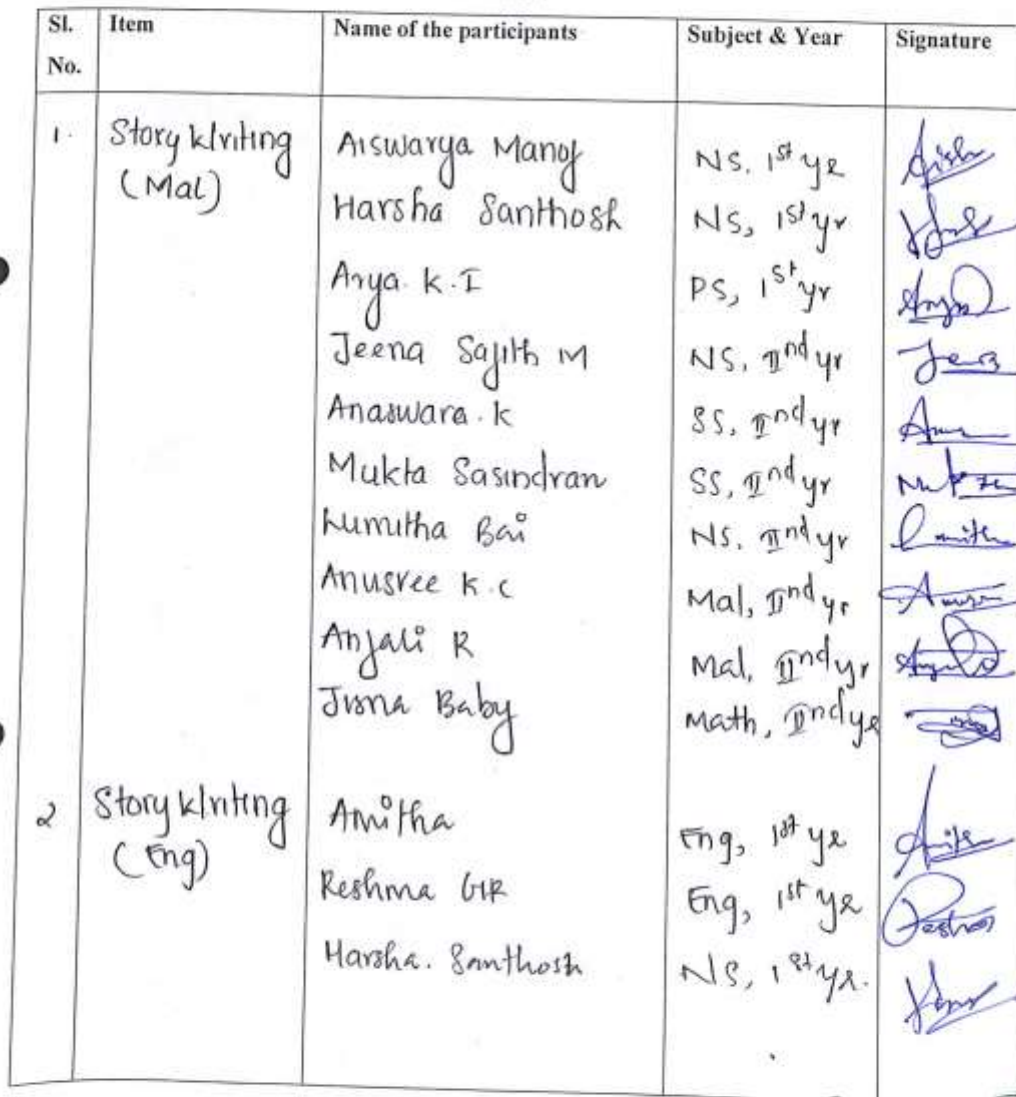 Sl. No. Item Name of the participants Subject & Year Signature
1. Story Writing Aiswarya Manoj NS, 1st yr
(Mal) Harsha Santhosh NS, 1st yr
Arya. K. I PS, 1st yr
Jeena Sajith M NS, IInd yr
Anaswara. K SS, IInd yr
Mukta Sasindran SS, IInd yr
Lumitha Bai NS, IInd yr
Anusree K. C Mal, IInd yr
Anjali R Mal, IInd yr
Jisna Baby Math, IInd yr
2 Story Writing Amitha Eng, 1st yr
(Eng) Reshma Eng, 1st yr
Harsha. Santhosh NS, 1st yr.